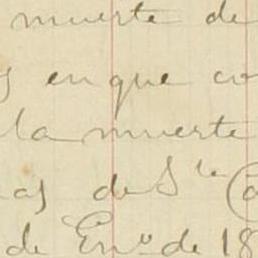 muerte de
en que co
la muerte
as de Sta (a
de Eno. de 18